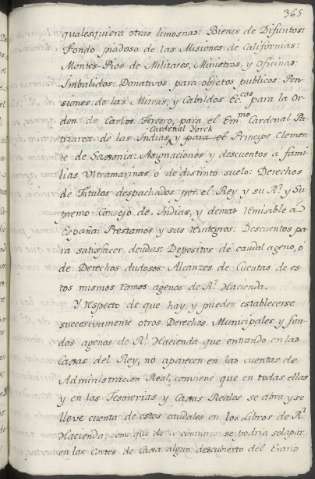 365
qualesquiera otras limosnas: Bienes de Difuntos:
Fondo piadoso de las Misiones de Californias:
Montes Pios de Militares, Ministros, y Oficinas:
Imbalidos: Donativos para objetos publicos: Pen-
siones de las Mitras, y Cabildos Ec.cas para la Or-
den de Carlos tercero, para el Em.mo Cardenal Pa-
triarca de las Indias, y para el Principe Clemen-
Cardenal Yorck
te de Saxonia: Asignaciones y descuentos a fami-
lias Ultramarinas, o de distinto suelo: Derechos
de Titulos despachados por el Rey y su R.l y Su-
premo Consejo de Indias, y demas remisible a
España: Prestamos y sus reintegros: Descuentos pa-
ra satisfacer deudas: Depositos de caudal ageno, o
de Derechos dudosos: Alcanzes de Cuentas de es-
tos mismos ramos agenos de R.l Hacienda.
Y respecto de que hay, y pueden establecerse
succesivamente otros Derechos Municipales y fon-
dos agenos de R.l Hacienda que entrando en las
Caxas del Rey, no aparecen en las cuentas de
Administracion Real, conviene que en todas ellas
y en las Tesorerias y Caxas Reales se abra y se
lleve cuenta de estos caudales en los Libros de R.l
Hacienda; porque de lo contrario se podria solapar
en los Cortes de Caxa algun descubierto del Erario